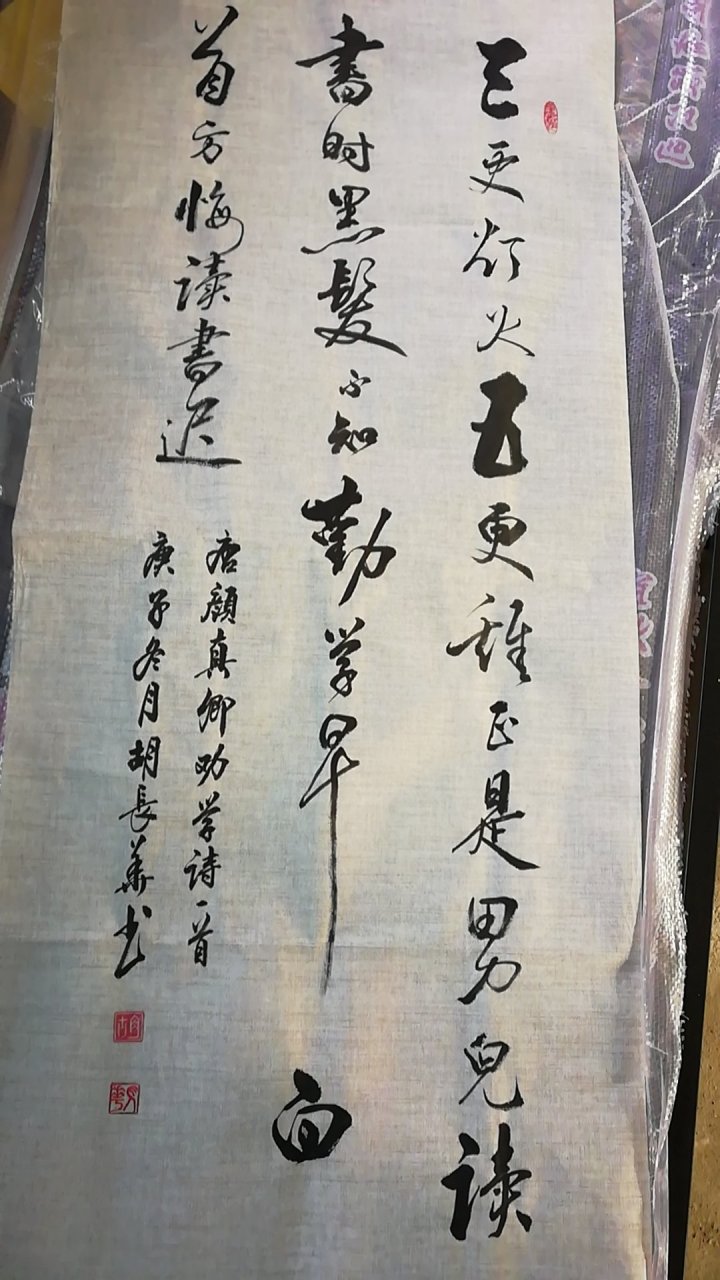 三更灯火五更雞正是男兒读
書时黑髮不知勤学早白
首方悔读書迟
唐顔真卿劝学诗一首
庚子冬月胡長華书